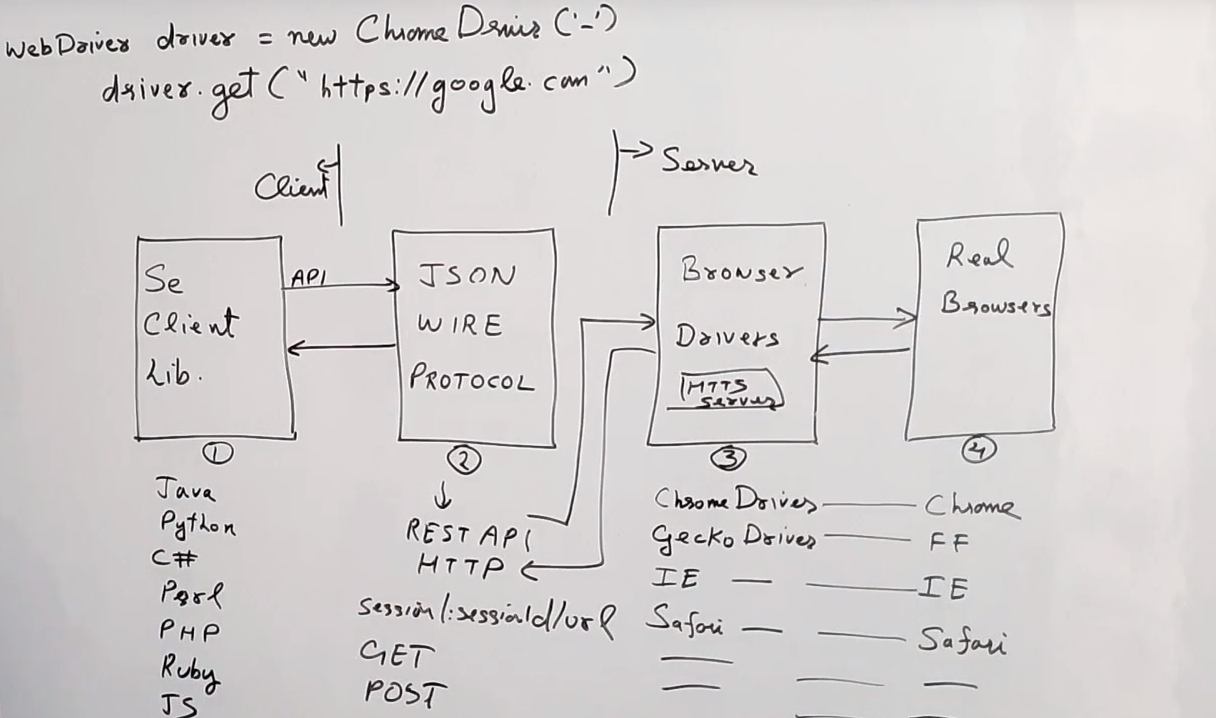 WebDriver driver = new ChromeDriver ('-')
driver.get ("https://google.com")
Client
Server
Se
Client
Lib.
API
JSON
WIRE
PROTOCOL
Browser
Drivers
HTTS
Server
Real
Browsers
1
2
3
4
Java
Python
C#
Perl
PHP
Ruby
JS
REST API
HTTP
session/:sessionId/url
GET
POST
ChromeDriver
GeckoDriver
IE
Safari
Chrome
FF
IE
Safari